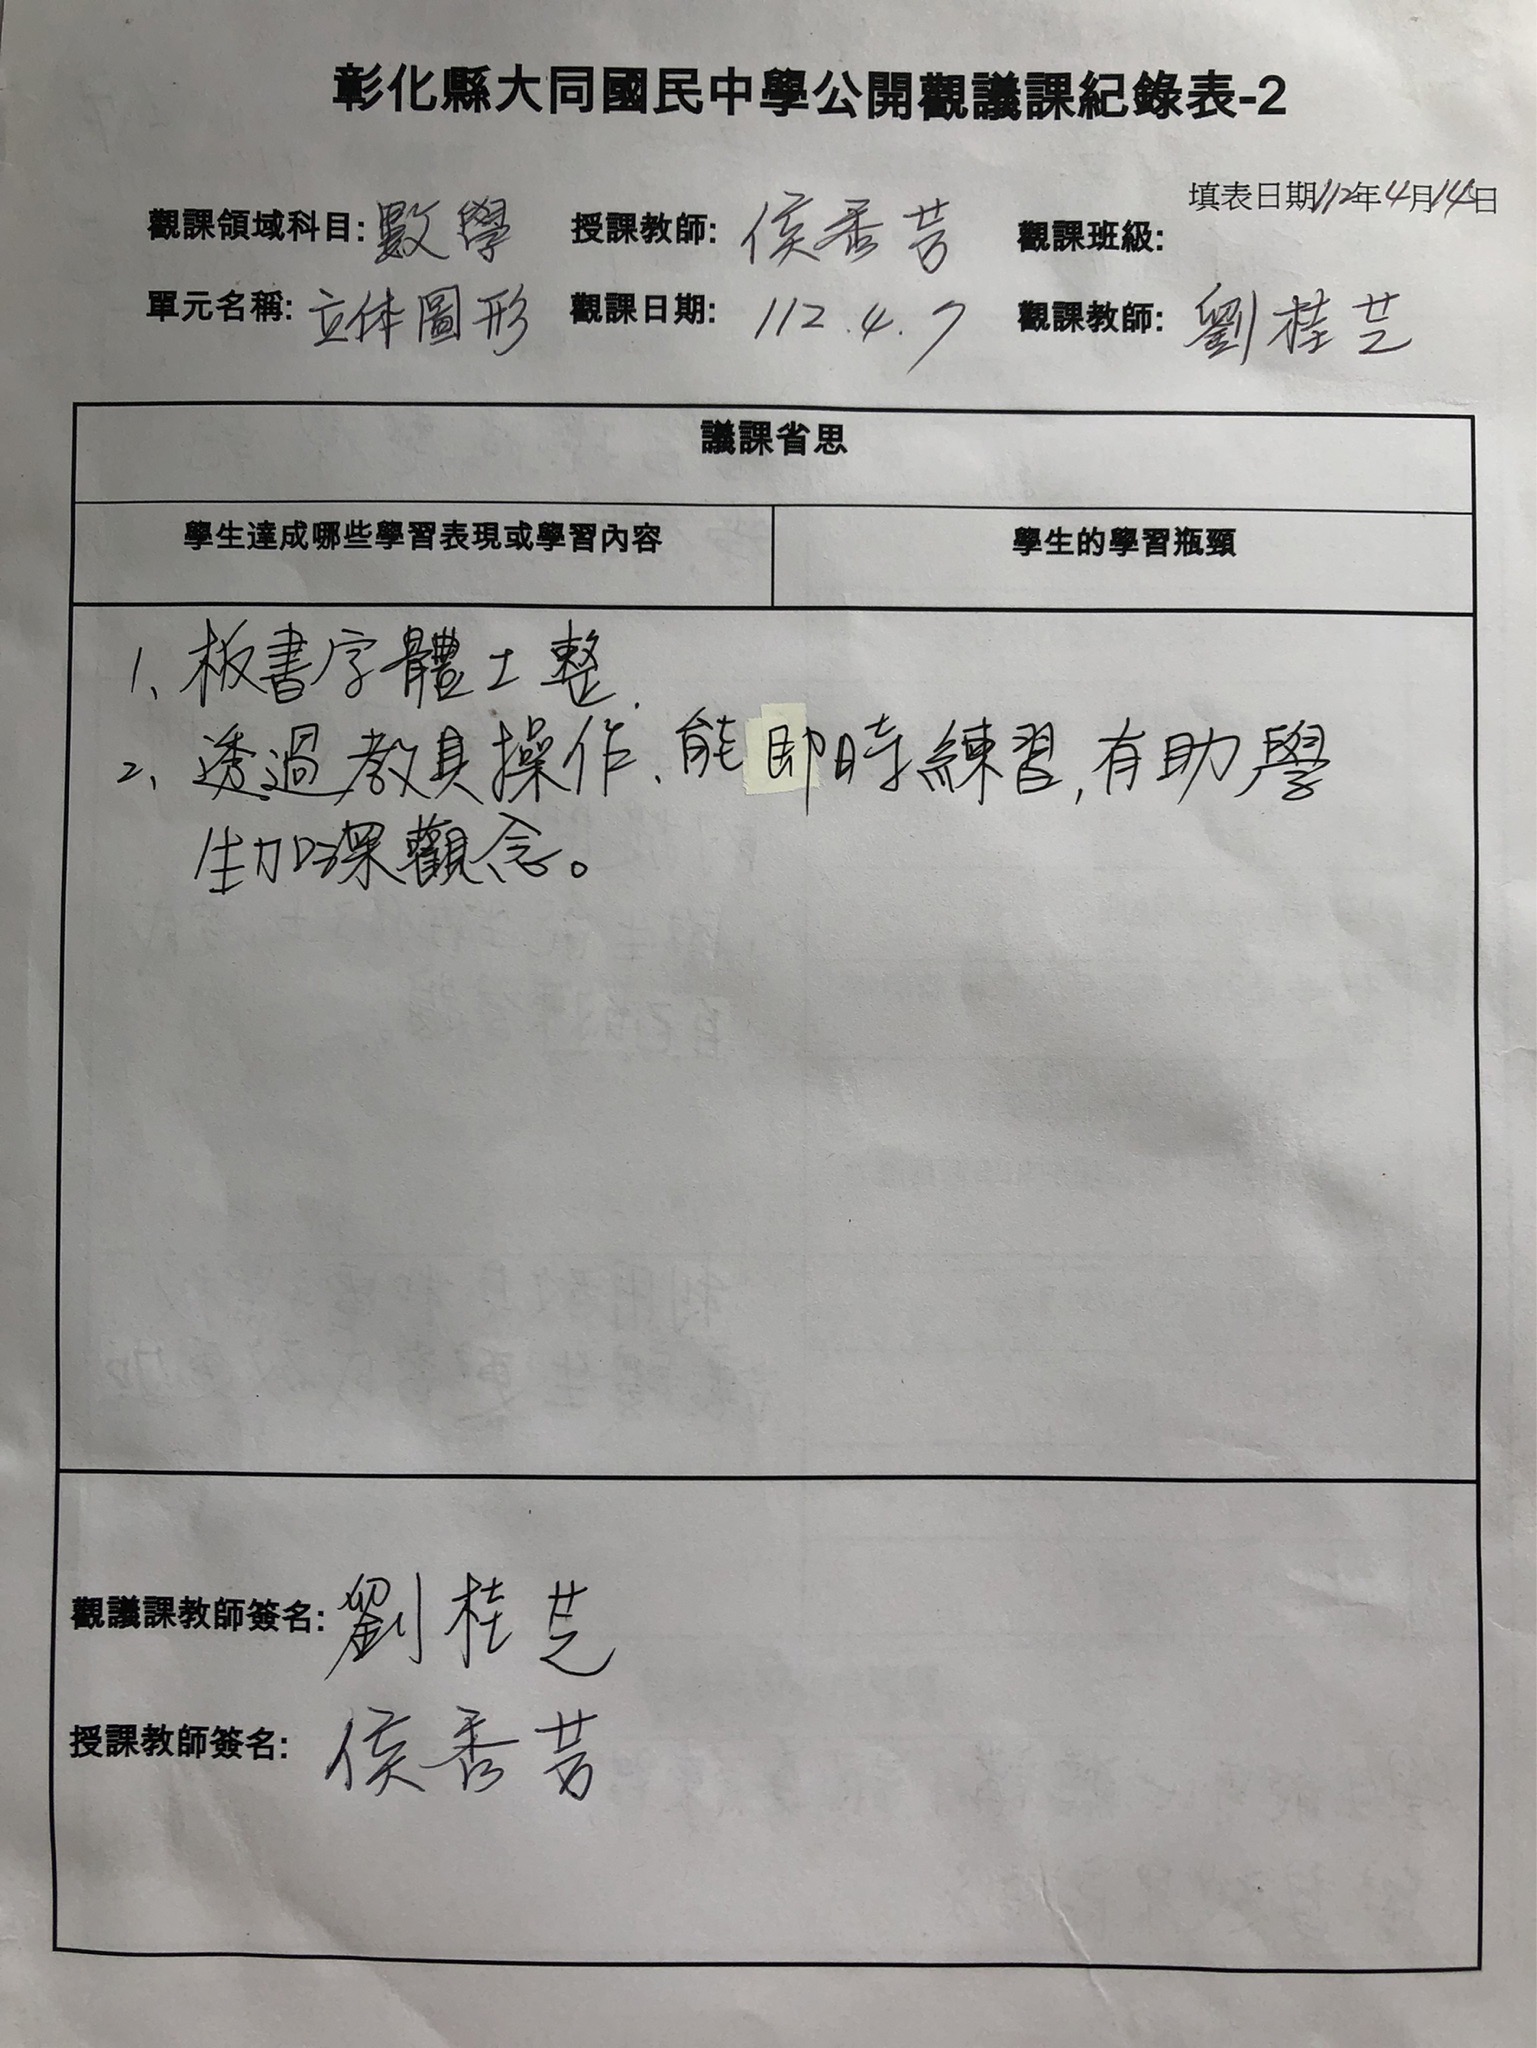 彰化縣大同國民中學公開觀議課紀錄表-2
填表日期112年4月14日
觀課領域科目: 數學 授課教師: 侯香芳 觀課班級:
單元名稱: 立体圖形 觀課日期: 112.4.7 觀課教師: 劉桂芝
議課省思
學生達成哪些學習表現或學習內容 學生的學習瓶頸
1、板書字體工整.
2、透過教具操作、能即時練習,有助學
生加深觀念。
觀議課教師簽名: 劉桂芝
授課教師簽名: 侯香芳